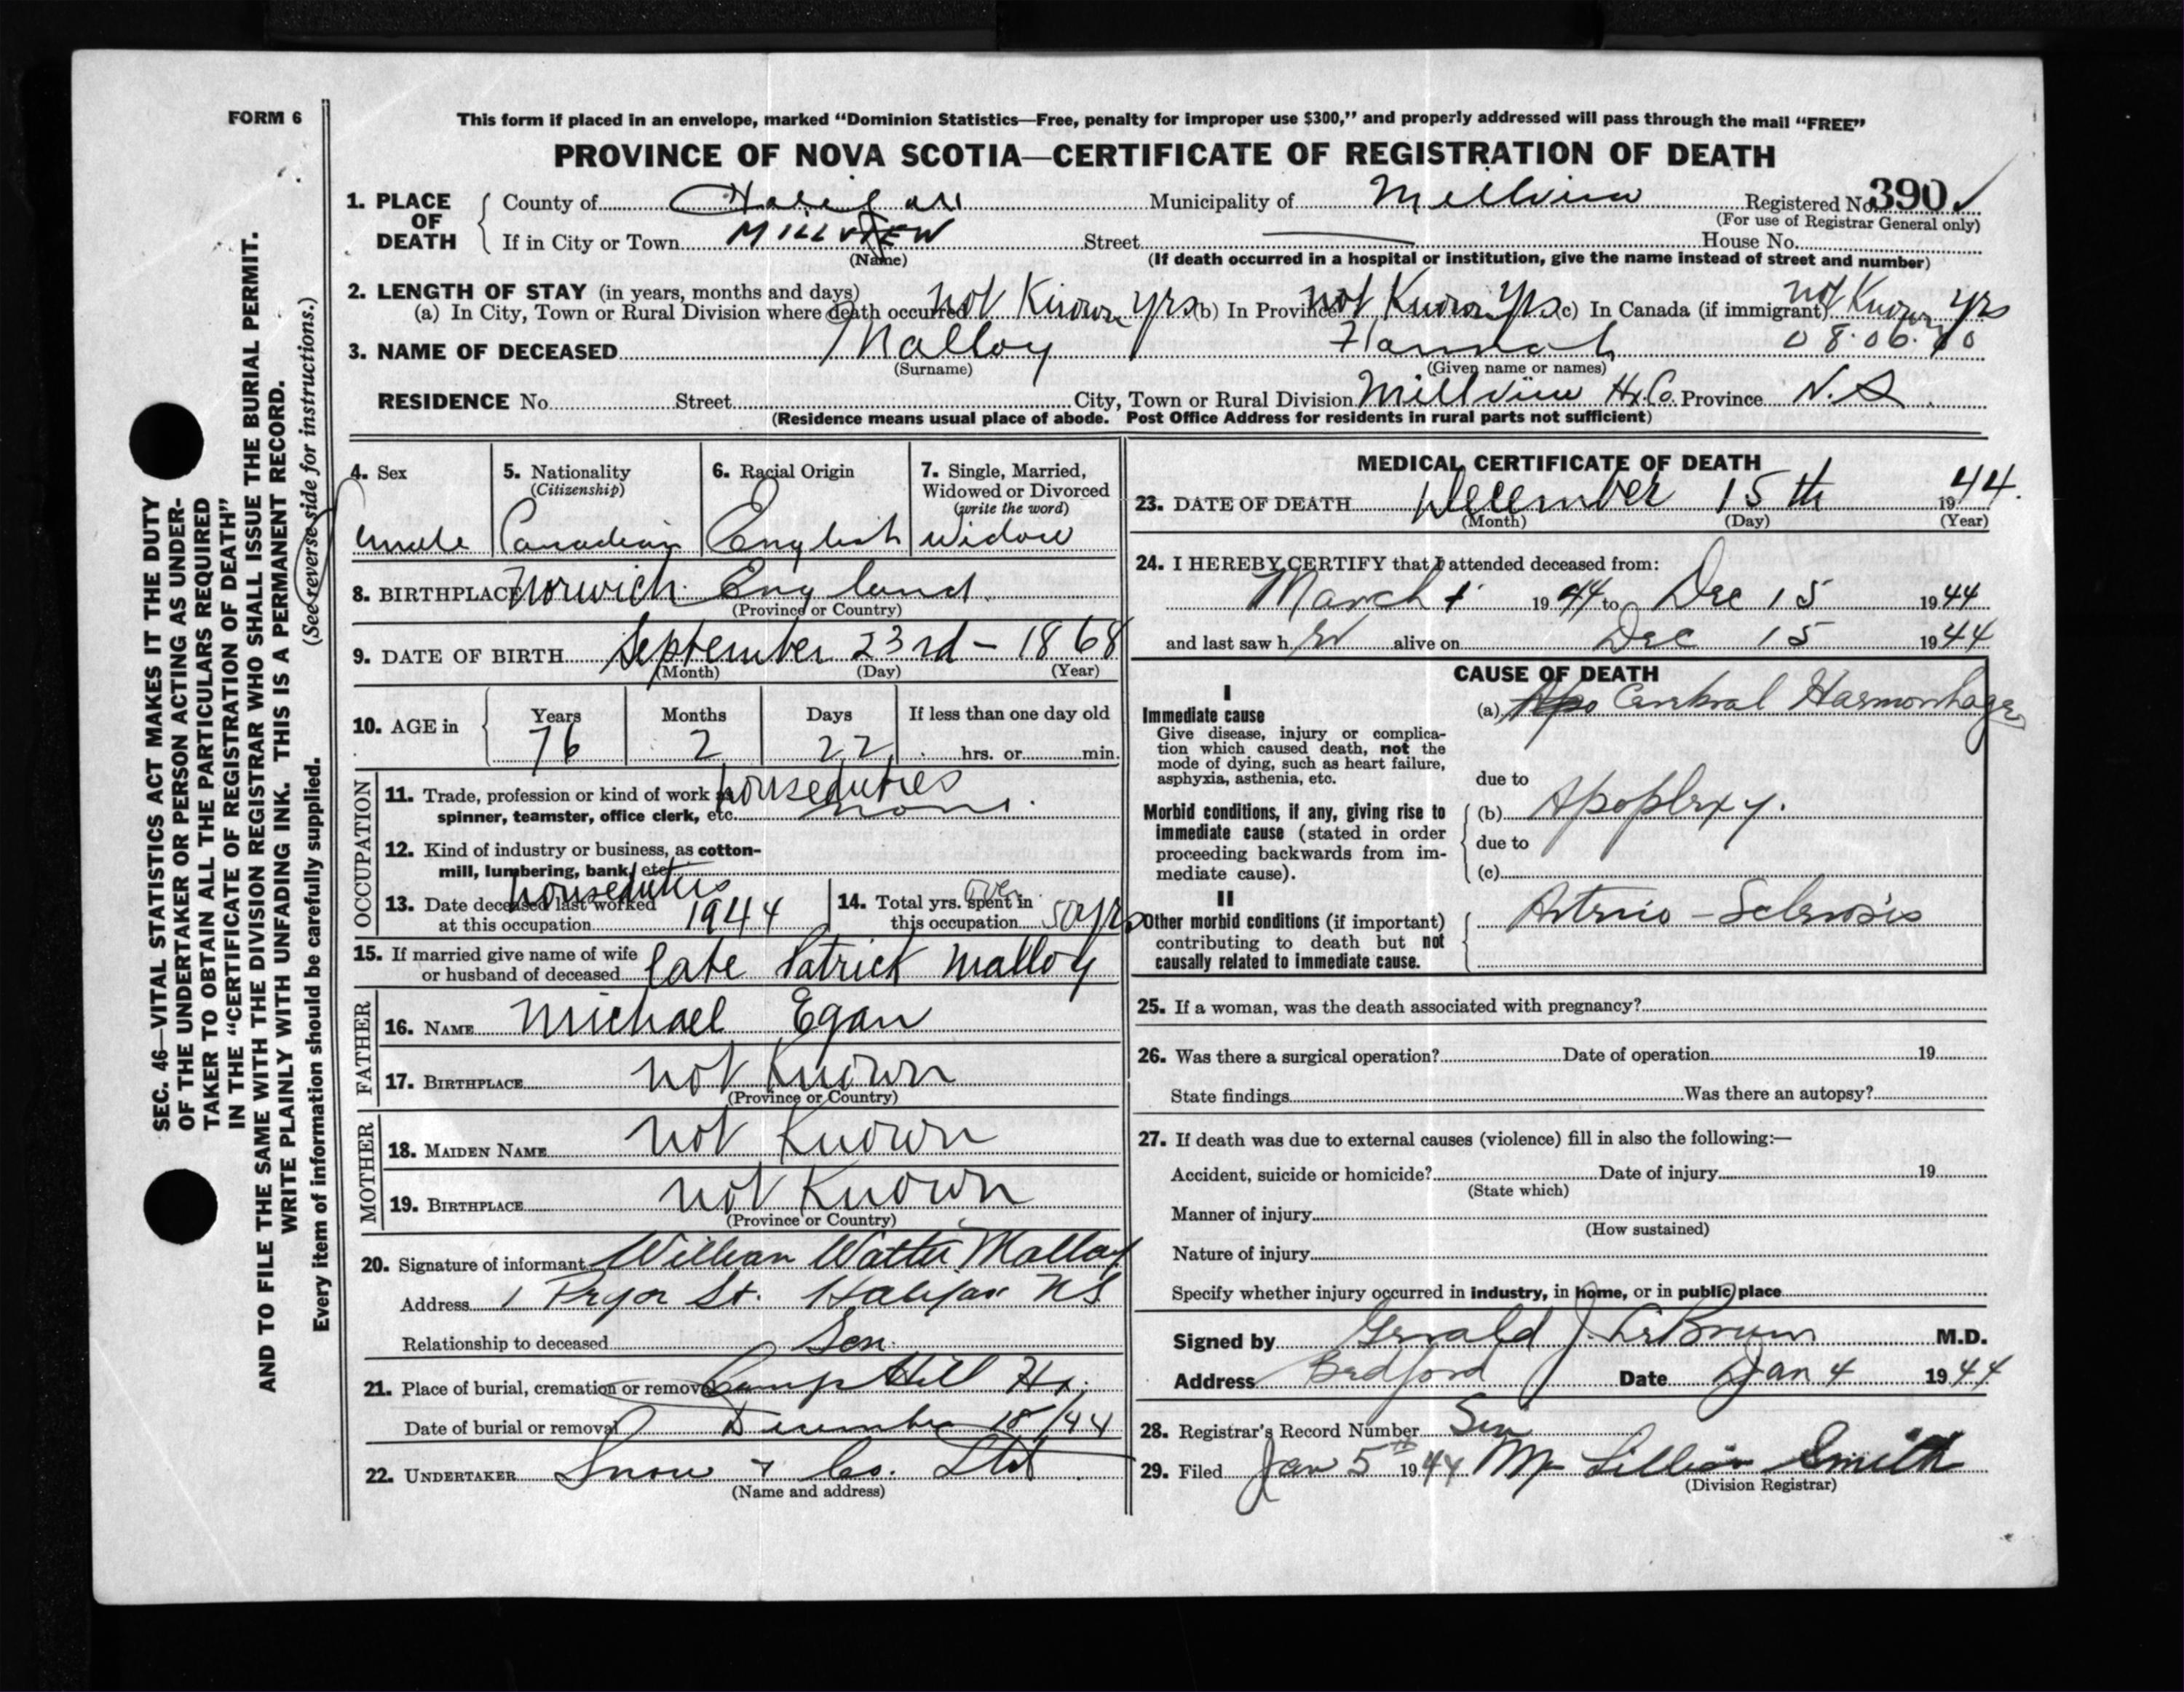 FORM 6
This form if placed in an envelope, marked "Dominion Statistics—Free, penalty for improper use $300," and properly addressed will pass through the mail "FREE"
PROVINCE OF NOVA SCOTIA—CERTIFICATE OF REGISTRATION OF DEATH
1. PLACE OF DEATH
County of Halifax Municipality of Millview Registered No. 390 ✓
(For use of Registrar General only)
If in City or Town MILLVIEW Street — House No.
(Name) (If death occurred in a hospital or institution, give the name instead of street and number)
2. LENGTH OF STAY (in years, months and days)
(a) In City, Town or Rural Division where death occurred not Known yrs (b) In Province not Known Yrs (c) In Canada (if immigrant) not Known yrs
3. NAME OF DECEASED Malloy Hannah 08.06.
(Surname) (Given name or names)
RESIDENCE No. Street City, Town or Rural Division Millview Hx. Co. Province N.S.
(Residence means usual place of abode. Post Office Address for residents in rural parts not sufficient)
SEC. 46—VITAL STATISTICS ACT MAKES IT THE DUTY
OF THE UNDERTAKER OR PERSON ACTING AS UNDER-
TAKER TO OBTAIN ALL THE PARTICULARS REQUIRED
IN THE "CERTIFICATE OF REGISTRATION OF DEATH"
AND TO FILE THE SAME WITH THE DIVISION REGISTRAR WHO SHALL ISSUE THE BURIAL PERMIT.
WRITE PLAINLY WITH UNFADING INK. THIS IS A PERMANENT RECORD.
Every item of information should be carefully supplied. (See reverse side for instructions.)
4. Sex
5. Nationality
(Citizenship)
6. Racial Origin
7. Single, Married,
Widowed or Divorced
(write the word)
Canadian English Widow
8. BIRTHPLACE Norwich England
(Province or Country)
9. DATE OF BIRTH September 23rd - 1868
(Month) (Day) (Year)
10. AGE in Years Months Days If less than one day old
76 2 22 hrs. or min.
OCCUPATION
11. Trade, profession or kind of work as houseduties
spinner, teamster, office clerk, etc. none.
12. Kind of industry or business, as cotton-
mill, lumbering, bank, etc.
houseduties
13. Date deceased last worked
at this occupation 1944
14. Total yrs. spent in over
this occupation 50 yrs
15. If married give name of wife
or husband of deceased late Patrick Malloy
FATHER
16. NAME Michael Egan
17. BIRTHPLACE not Known
(Province or Country)
MOTHER
18. MAIDEN NAME not Known
19. BIRTHPLACE not Known
(Province or Country)
20. Signature of informant William Walter Malloy
Address 1 Pryor St. Halifax NS
Relationship to deceased Son.
21. Place of burial, cremation or removal Camp Hill Hx.
Date of burial or removal December 18/44
22. UNDERTAKER Snow & Co. Ltd.
(Name and address)
MEDICAL CERTIFICATE OF DEATH
23. DATE OF DEATH December 15th 1944.
(Month) (Day) (Year)
24. I HEREBY CERTIFY that I attended deceased from:
March 1 1944 to Dec 15 1944
and last saw her alive on Dec 15 1944
CAUSE OF DEATH
I
Immediate cause
Give disease, injury or complica-
tion which caused death, not the
mode of dying, such as heart failure,
asphyxia, asthenia, etc.
(a) Apo Cerebral Haemorrhage
due to
Morbid conditions, if any, giving rise to
immediate cause (stated in order
proceeding backwards from im-
mediate cause).
(b) Apoplexy.
due to
(c)
II
Other morbid conditions (if important)
contributing to death but not
causally related to immediate cause.
Arterio-Sclerosis
25. If a woman, was the death associated with pregnancy?
26. Was there a surgical operation? Date of operation 19
State findings Was there an autopsy?
27. If death was due to external causes (violence) fill in also the following:—
Accident, suicide or homicide? Date of injury 19
(State which)
Manner of injury
(How sustained)
Nature of injury
Specify whether injury occurred in industry, in home, or in public place
Signed by Gerald J. LeBrun M.D.
Address Bedford Date Jan 4 1944
28. Registrar's Record Number
29. Filed Jan 5th 1944 Lillian Smith
(Division Registrar)